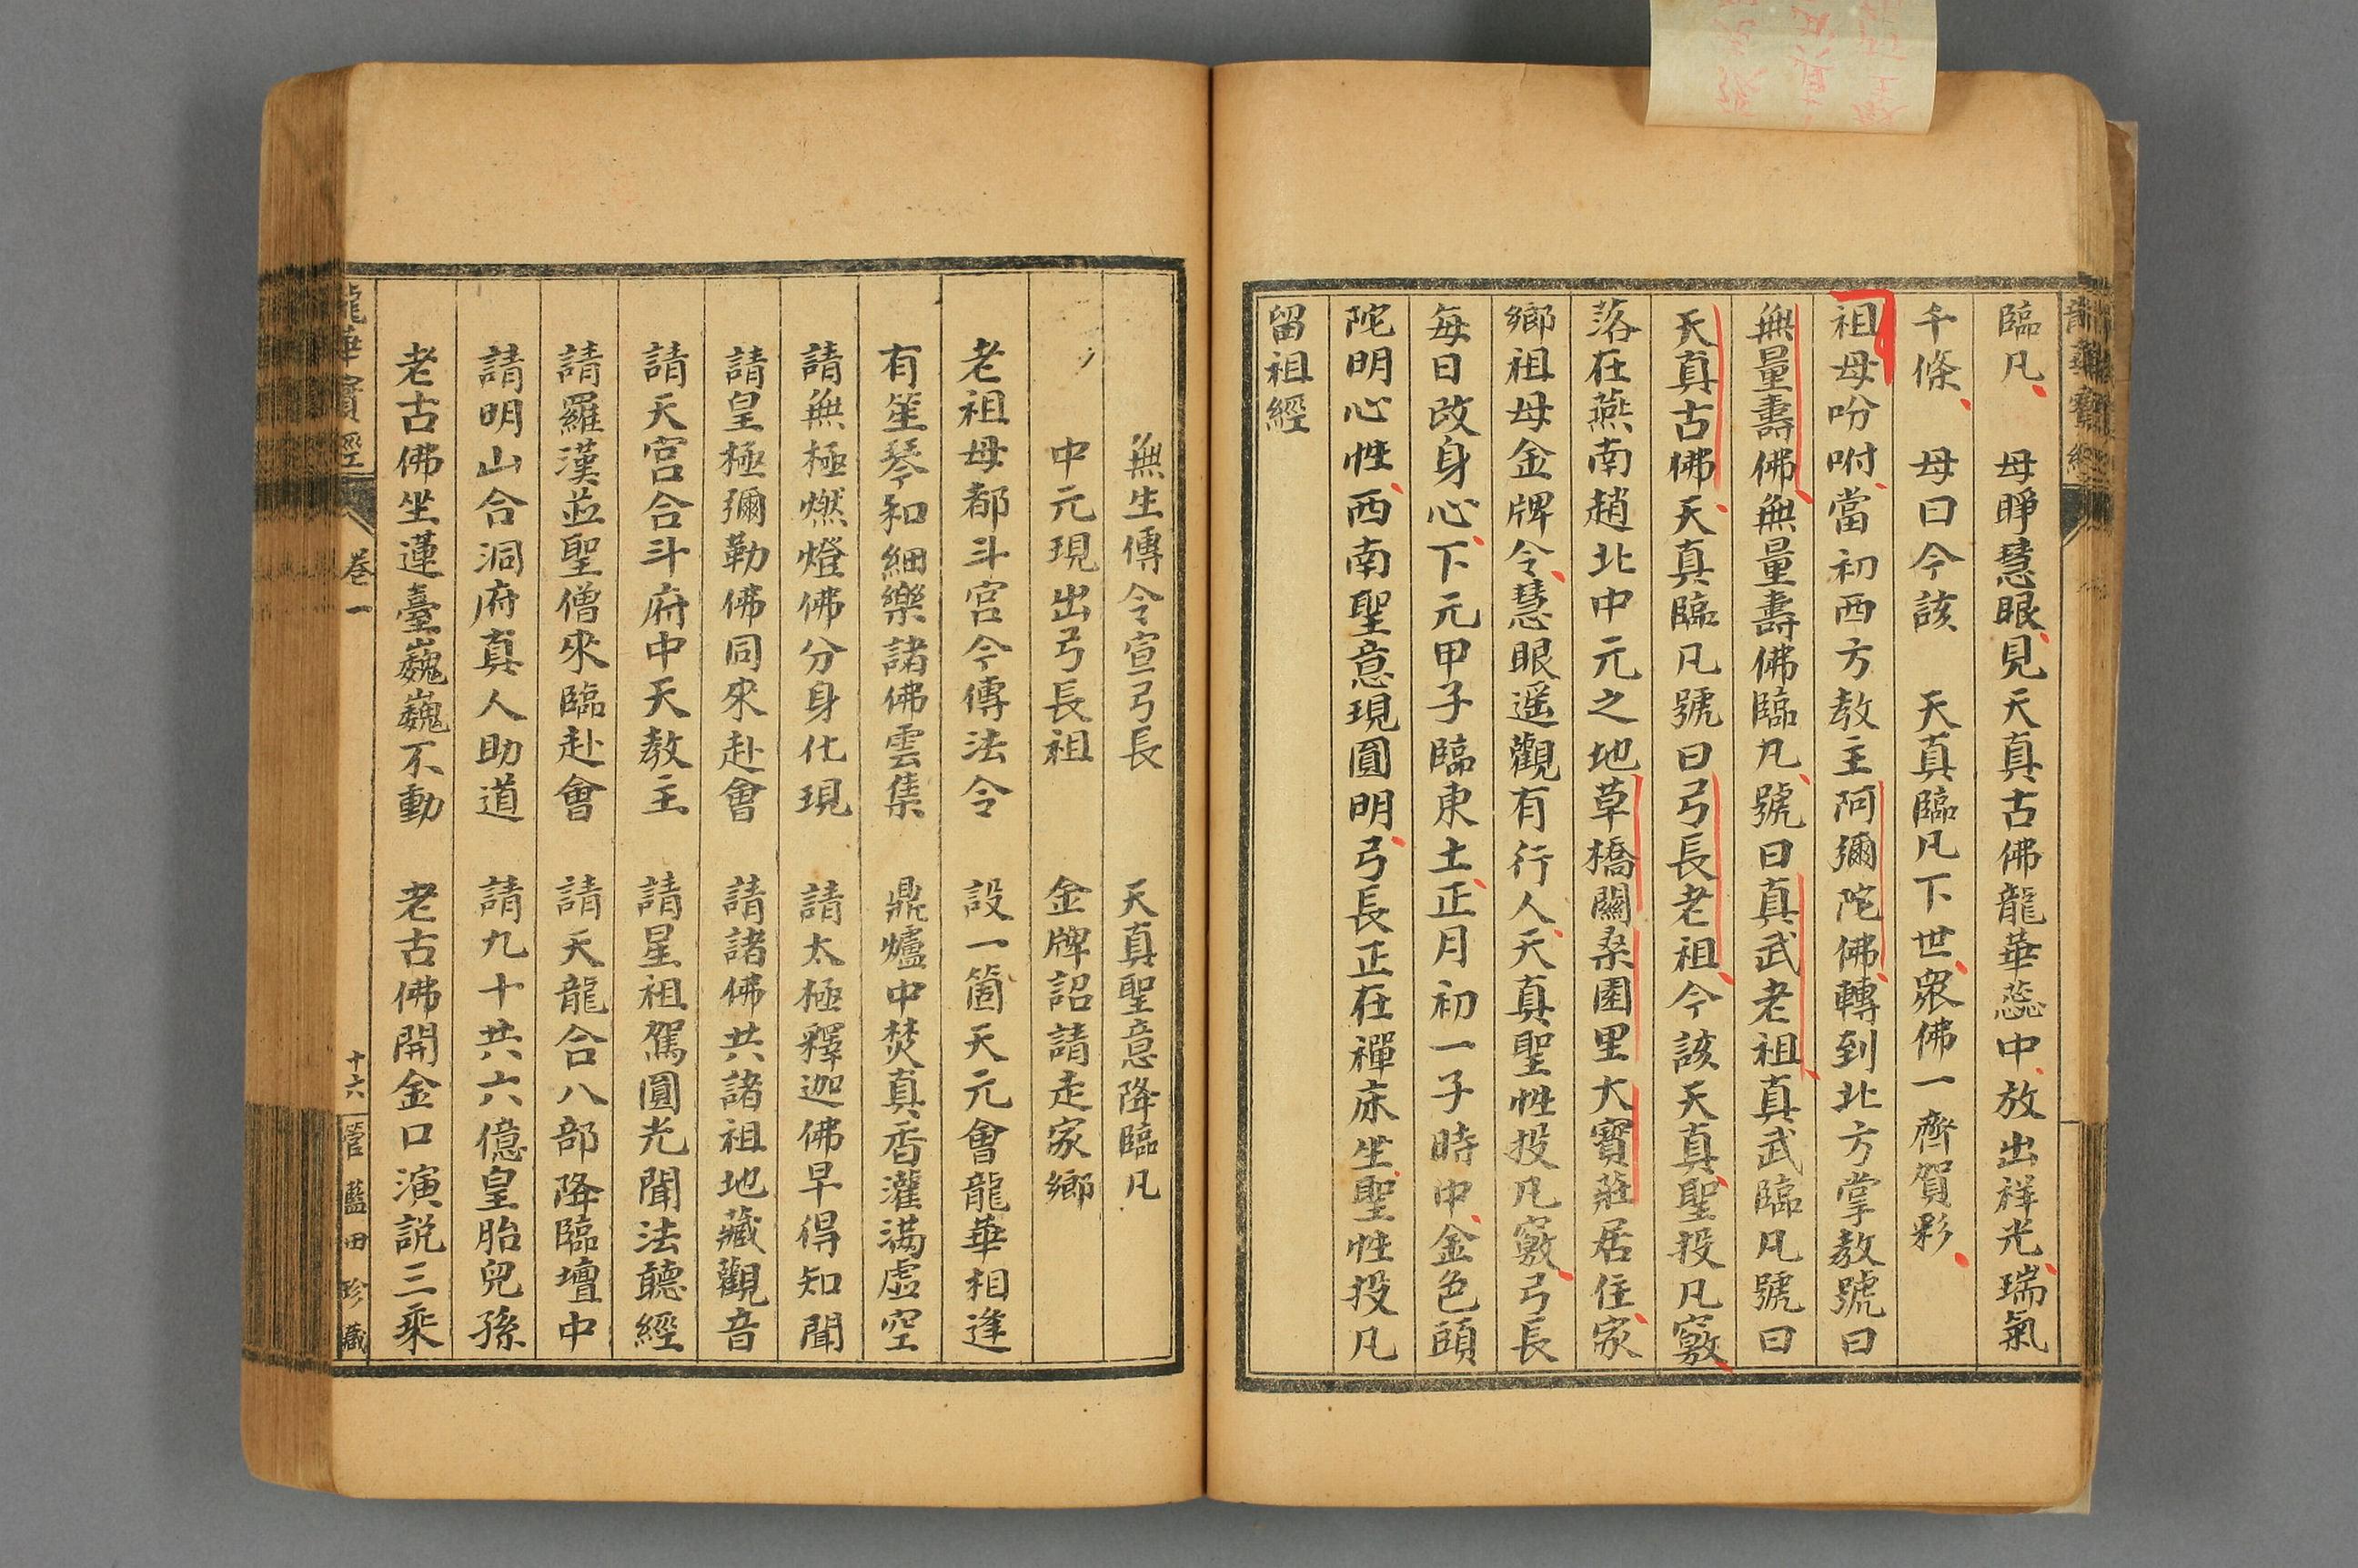 臨凡 母睜慧眼見天真古佛龍華蕊中放出祥光瑞氣
千條 母曰今該 天真臨凡下世衆佛一齊賀彩
祖母吩咐當初西方教主阿彌陀佛轉到北方掌教號曰
無量壽佛無量壽佛臨凡號曰真武老祖真武臨凡號曰
天真古佛天真臨凡號曰弓長老祖今該天真聖投凡竅
落在燕南趙北中元之地草橋關桑園里大寶莊居住家
鄉祖母金牌令慧眼遥觀有行人天真聖性投凡竅弓長
每日改身心下元甲子臨東土正月初一子時中金色頭
陀明心性西南聖意現圓明弓長正在禪床坐聖性投凡
留祖經
無生傳令宣弓長 天真聖意降臨凡
中元現出弓長祖 金牌詔請走家鄉
老祖母都斗宮今傳法令 設一箇天元會龍華相逢
有笙琴和細樂諸佛雲集 鼎爐中焚真香灌滿虛空
請無極燃燈佛分身化現 請太極釋迦佛早得知聞
請皇極彌勒佛同來赴會 請諸佛共諸祖地藏觀音
請天宮合斗府中天教主 請星祖駕圓光聞法聽經
請羅漢並聖僧來臨赴會 請天龍合八部降臨壇中
請明山合洞府真人助道 請九十共六億皇胎兒孫
老古佛坐蓮臺巍巍不動 老古佛開金口演説三乘
龍華寶經 卷一 十六 管藍田珍藏